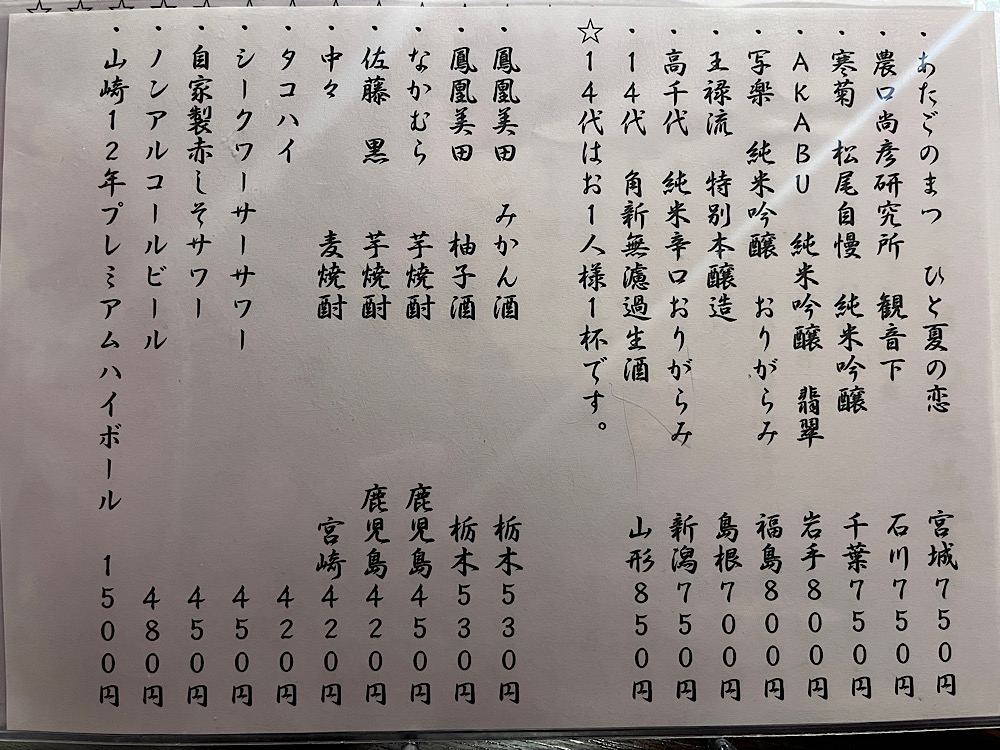 ・あたごのまつ ひと夏の恋 宮城750円
・農口尚彦研究所 観音下 石川750円
・寒菊 松尾自慢 純米吟醸 千葉750円
・AKABU 純米吟醸 翡翠 岩手800円
・写楽 純米吟醸 おりがらみ 福島800円
・王禄流 特別本醸造 島根700円
・高千代 純米辛口おりがらみ 新潟750円
・14代 角新無濾過生酒 山形850円
☆14代はお1人様1杯です。
・鳳凰美田 みかん酒 栃木530円
・鳳凰美田 柚子酒 栃木530円
・なかむら 芋焼酎 鹿児島450円
・佐藤 黒 芋焼酎 鹿児島420円
・中々 麦焼酎 宮崎420円
・タコハイ 420円
・シークワーサーサワー 450円
・自家製赤しそサワー 450円
・ノンアルコールビール 480円
・山崎12年プレミアムハイボール 1500円